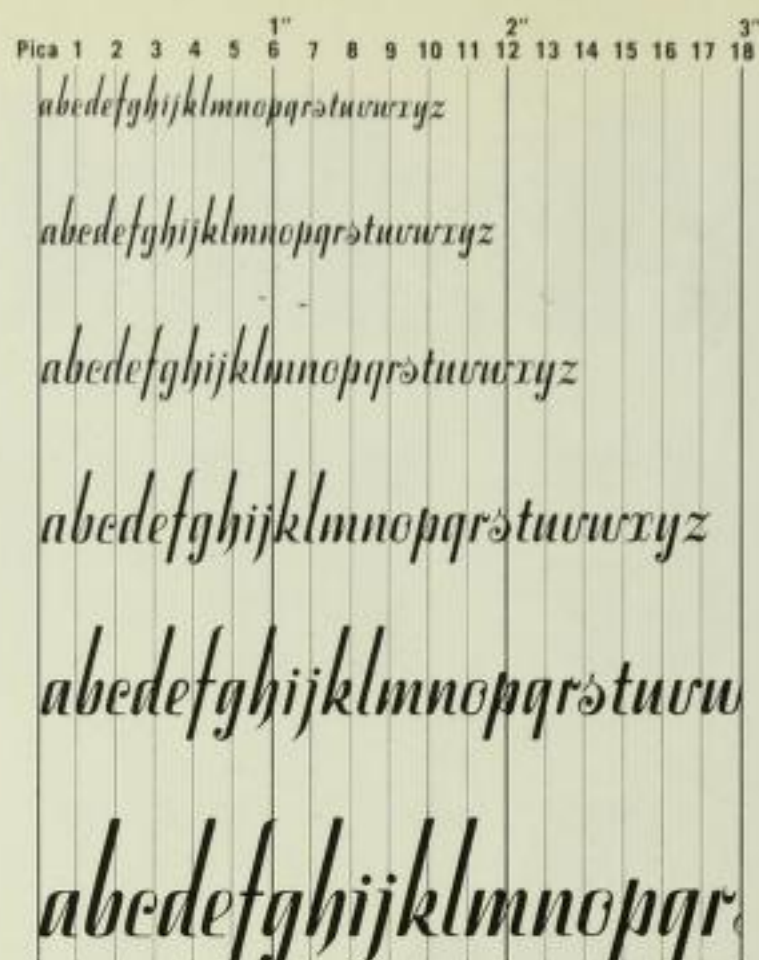 1" 2" 3"
Pica 1 2 3 4 5 6 7 8 9 10 11 12 13 14 15 16 17 18
abcdefghijklmnopqrstuvwxyz
abcdefghijklmnopqrstuvwxyz
abcdefghijklmnopqrstuvwxyz
abcdefghijklmnopqrstuvwxyz
abcdefghijklmnopqrstuvw
abcdefghijklmnopqr